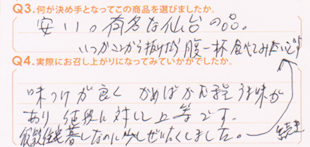 Q3.何が決め手となってこの商品を選びましたか。
安い。有名な仙台の品。
いつかこころから抜けるう腹一杯食べてみたいです
Q4.実際にお召し上がりになってみていかがでしたか。
味つけが良く かめばかむ程 うま味が
あり 値段に対し上等です。
年金生活 暮しなのに少しぜいたくしました。